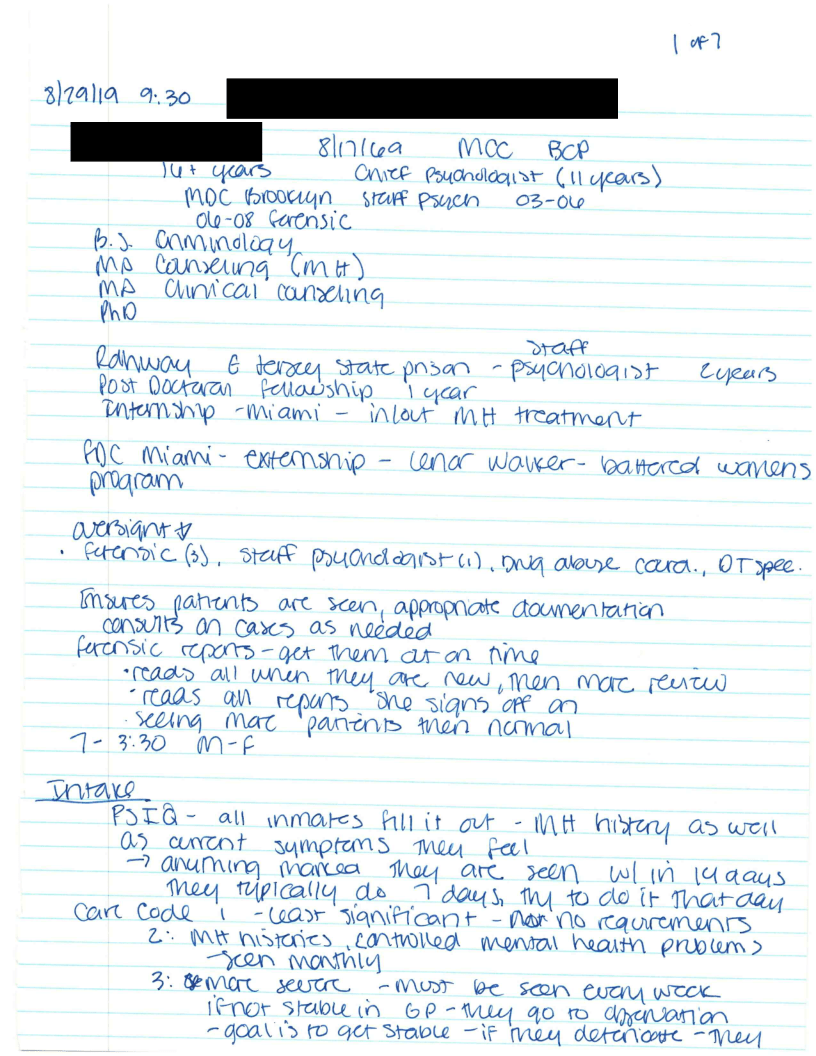 1 of 7
8/29/19 9:30
8/17/69 MCC BCP
16+ years Chief Psychologist (11 years)
MDC Brooklyn Staff Psych 03-06
06-08 forensic
B.S. Criminology
MA Counseling (MH)
MA Clinical counseling
PhD
Staff
Rahway E Jersey State prison - psychologist 2 years
Post Doctoral fellowship 1 year
Internship - Miami - in/out MH treatment
FDC Miami - externship - Lenor Walker - battered womens
program
oversight ↓
• forensic (3), staff psychologist (1), Drug abuse coord., OT spec.
Ensures patients are seen, appropriate documentation
consults on cases as needed
forensic reports - get them out on time
• reads all when they are new, then more review
• reads all reports she signs off on
• seeing more patients then normal
7 - 3:30 M-F
Intake
PSIQ - all inmates fill it out - MH history as well
as current symptoms they feel
→ anything marked they are seen w/ in 14 days
they typically do 7 days, try to do it that day
Care Code 1 - least significant - no requirements
2: MH histories, controlled mental health problems
- seen monthly
3: more severe - must be seen every week
if not stable in GP - they go to observation
- goal is to get stable - if they deteriorate - they